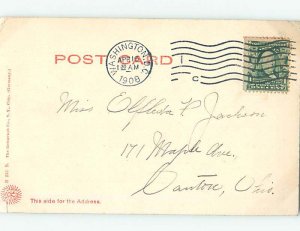 POST CARD
WASHINGTON, D.C.
AM
1906
1
C
Miss Effleda P. Jackson
171 Maple Ave.
Canton, Ohio.
This side for the Address.